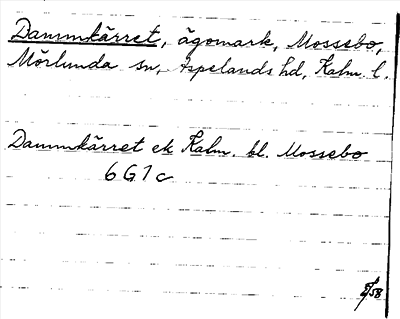 Dammkärret, ägomark, Mossebo,
Mörlunda sn, Aspelands hd, Kalm. l.
Dammkärret ek Kalm. bl. Mossebo
6G1c